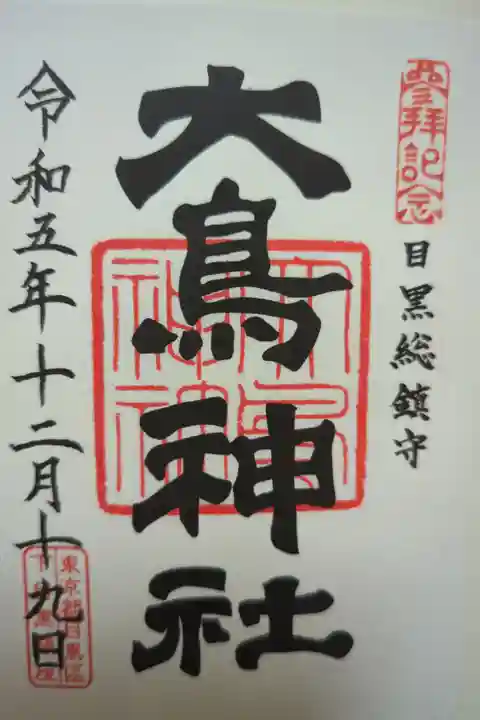 參拜記念
目黒総鎮守
大鳥神社
令和五年十二月十九日
東京都目黒区